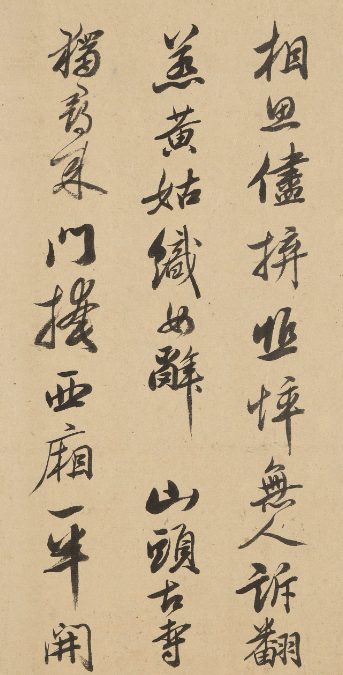 相思儘拼悴無人訴翻
羨黃姑織女辭 山頭古寺
獨尋來門掩西廂一半開